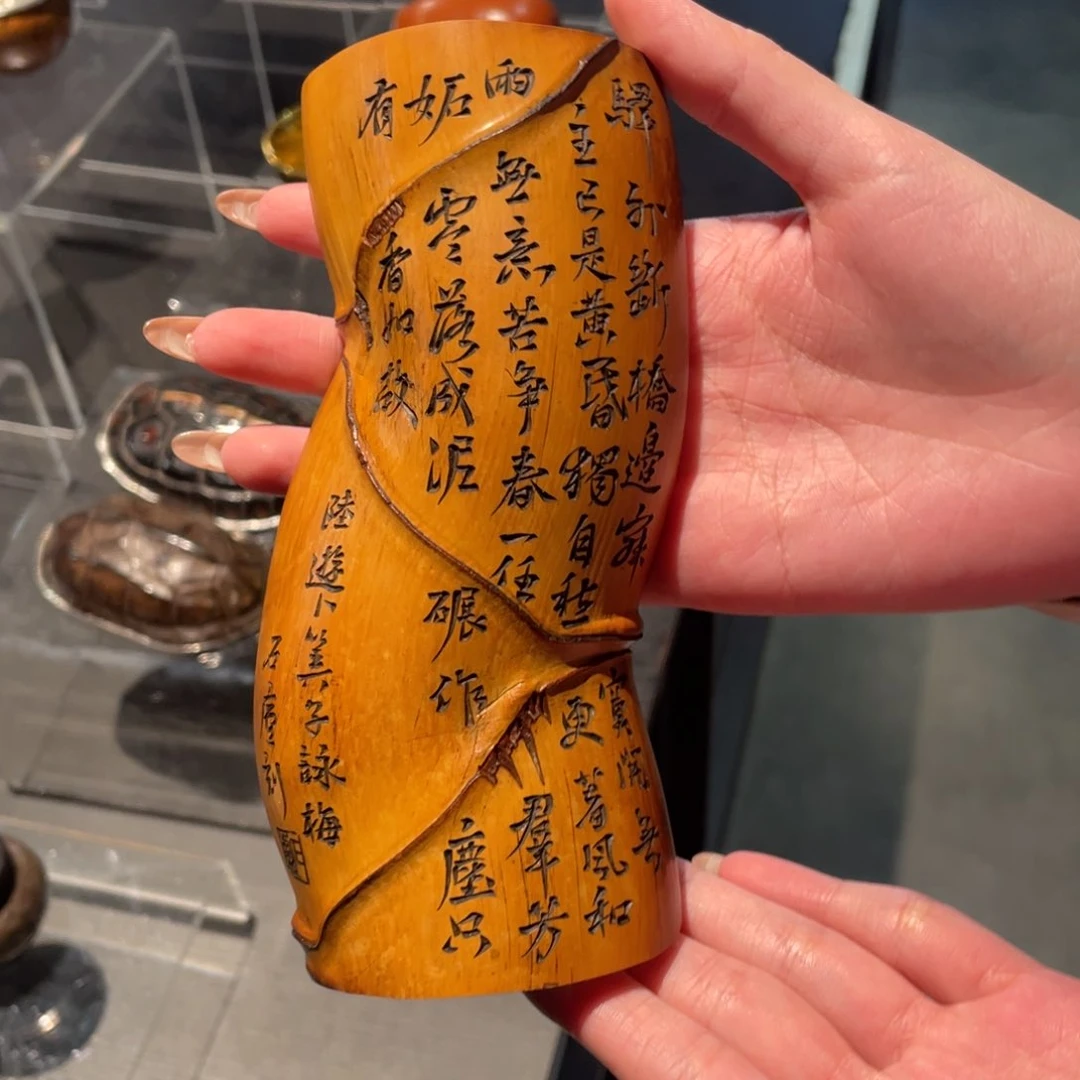 驛外斷橋邊寂寞開無
主已是黃昏獨自愁更著風和
雨無意苦爭春一任羣芳
妬零落成泥碾作塵只
有香如故
陸遊卜算子詠梅
石刻